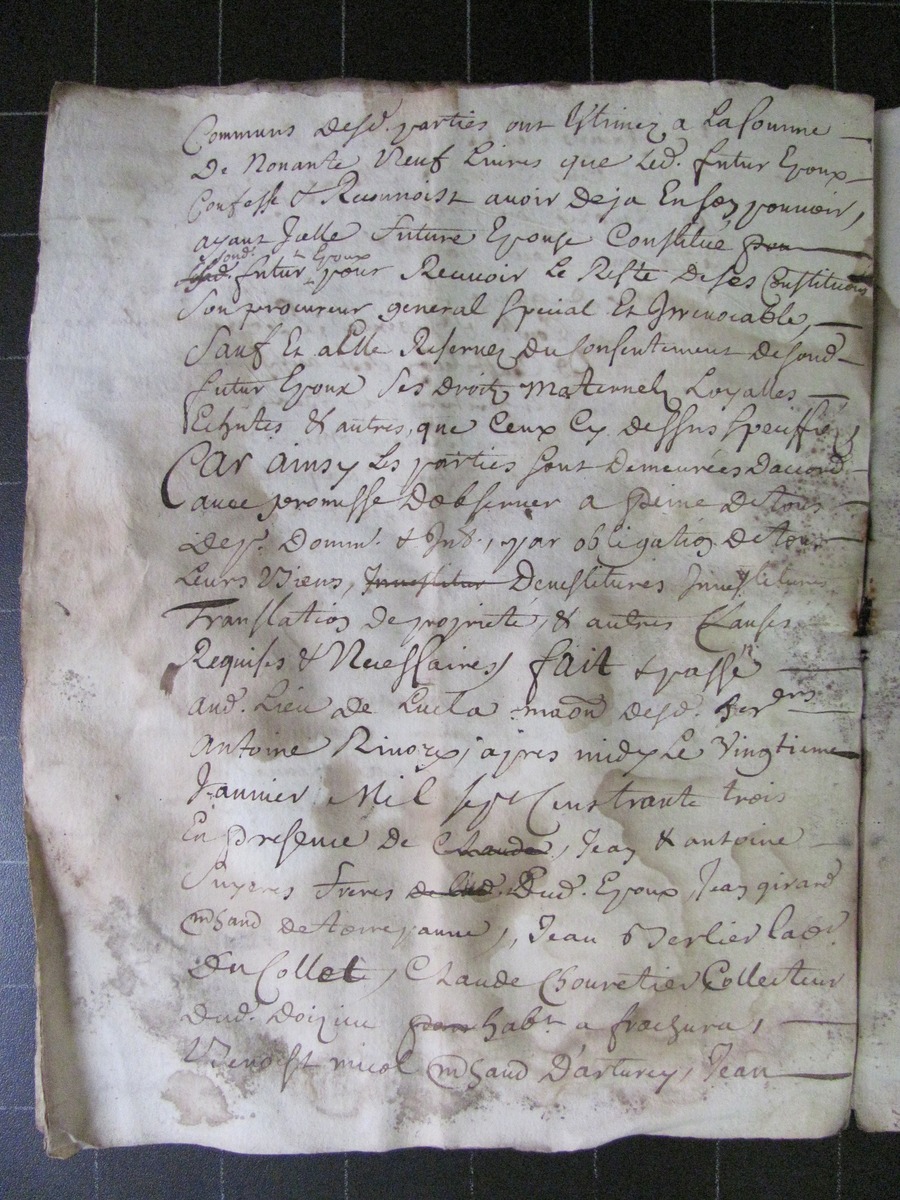 Communs desd. parties ont Estimez a La somme
De Nonante Neuf Livres que Led. futur Epoux
Confesse & Reconnoist avoir deja En son pouvoir,
ayant Icelle future Epouse Constitué pou
sond. Epoux
futur pour Recevoir Le Reste de ses Constitutions
Son procureur general special Et Irrevocable,
Sauf Et a Elle Reservez du Consentement de sond
futur Epoux Ses droits maternels Loyalles
Echutes & autres, que Ceux Cy dessus specifiés
Car ainsy Les parties sont demeurées daccord
avec promesse Dobserver a peine de tous
Desp. Domm. & Int., par obligation de tous
Leurs Biens, Investitur Devestitures Investitures
Translation de propriete, & autres Clauses
Requises & Necessaires, fait & passé
aud. Lieu de Lucla maon desd.
Antoine apres midy Le Vingtieme
Janvier Mil sept Cens trante trois
En presence de Claude, Jean & antoine
freres Dud. Epoux, Jean girard
mchand de terrejanne, Jean Berlier Labr
Du Collet, Claude Chouretier Collecteur
dud. Doizieu habt a frachura,
Benoist micol mchand Darturey, Jean